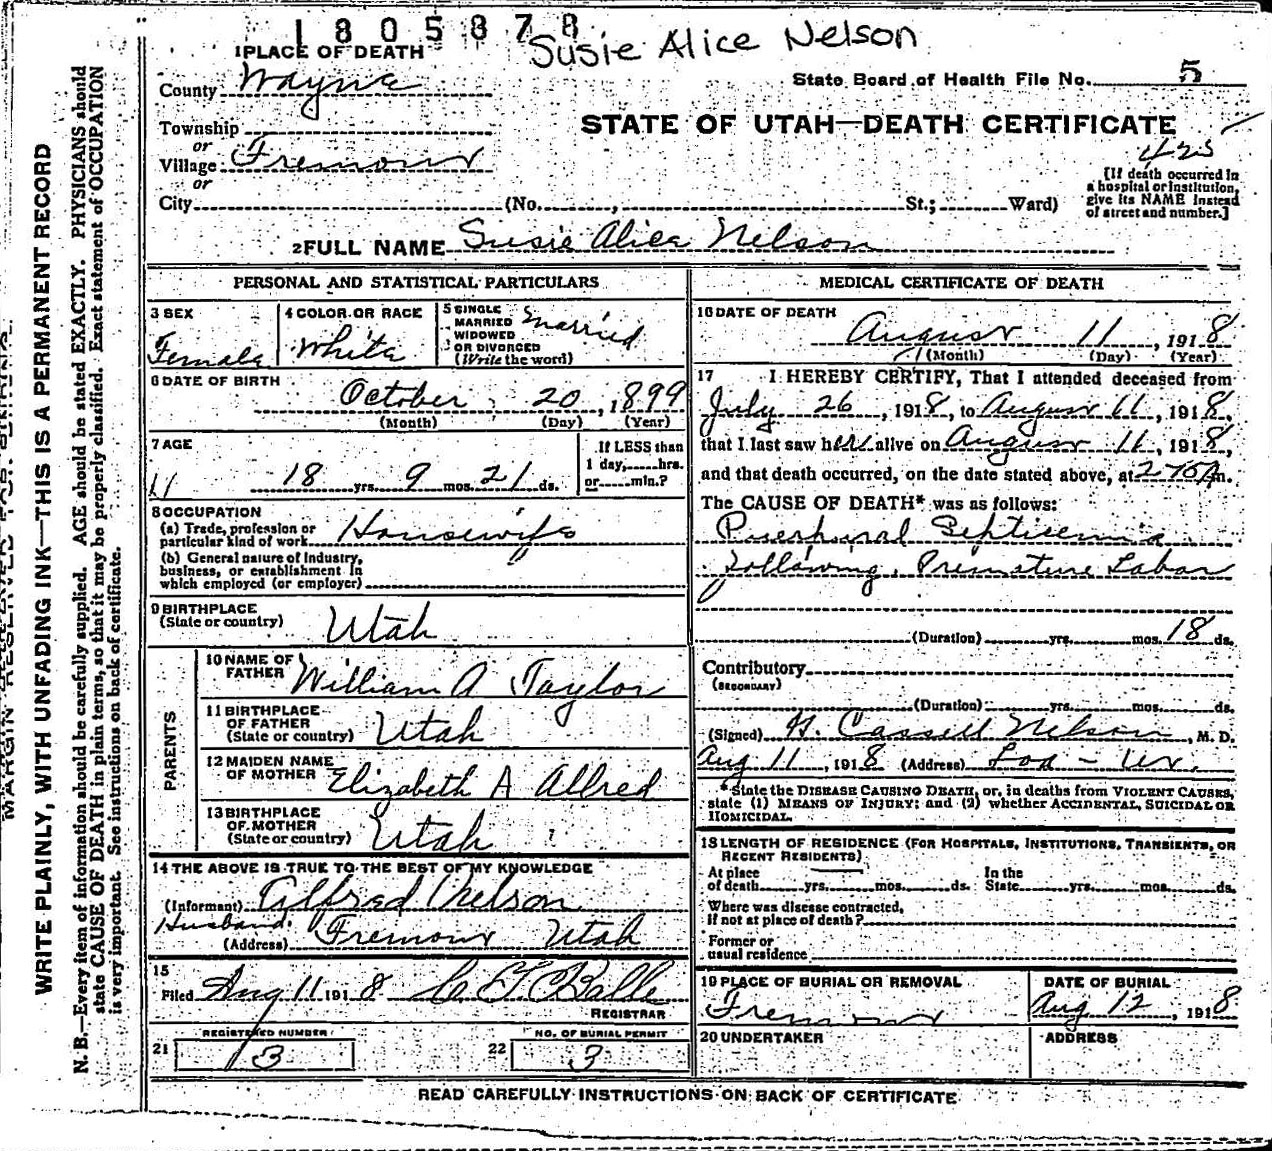 1805878
Susie Alice Nelson
1 PLACE OF DEATH
State Board of Health File No. 5
County Wayne
STATE OF UTAH—DEATH CERTIFICATE
Township
or
425
Village Fremont
or
[If death occurred in
a hospital or institution,
give its NAME instead
of street and number.]
City (No. , St.; Ward)
2 FULL NAME Susie Alice Nelson
PERSONAL AND STATISTICAL PARTICULARS
3 SEX
Female
4 COLOR OR RACE
White
5 SINGLE
MARRIED
WIDOWED
OR DIVORCED
(Write the word)
Married
6 DATE OF BIRTH
October 20, 1899
(Month) (Day) (Year)
7 AGE
11 18 yrs. 9 mos. 21 ds.
If LESS than
1 day, hrs.
or min.?
8 OCCUPATION
(a) Trade, profession or
particular kind of work Housewife
(b) General nature of industry,
business, or establishment in
which employed (or employer)
9 BIRTHPLACE
(State or country) Utah
PARENTS
10 NAME OF
FATHER William A Taylor
11 BIRTHPLACE
OF FATHER
(State or country) Utah
12 MAIDEN NAME
OF MOTHER Elizabeth A Allred
13 BIRTHPLACE
OF MOTHER
(State or country) Utah
14 THE ABOVE IS TRUE TO THE BEST OF MY KNOWLEDGE
(Informant) Alfred Nelson
Husband
(Address) Fremont Utah
15
Filed Aug 11 1918
REGISTRAR
REGISTERED NUMBER
21 3
NO. OF BURIAL PERMIT
22 3
MEDICAL CERTIFICATE OF DEATH
16 DATE OF DEATH
August 11, 1918
(Month) (Day) (Year)
17 I HEREBY CERTIFY, That I attended deceased from
July 26, 1918, to August 11, 1918,
that I last saw her alive on August 11, 1918,
and that death occurred, on the date stated above, at m.
The CAUSE OF DEATH* was as follows:
Puerhural Septicemia
following Premature Labor
(Duration) yrs. mos. 18 ds.
Contributory
(SECONDARY)
(Duration) yrs. mos. ds.
(Signed) H. Cassell Nelson, M. D.
Aug 11, 1918 (Address) Loa - Ut.
*State the DISEASE CAUSING DEATH, or, in deaths from VIOLENT CAUSES,
state (1) MEANS OF INJURY; and (2) whether ACCIDENTAL, SUICIDAL OR
HOMICIDAL.
18 LENGTH OF RESIDENCE (FOR HOSPITALS, INSTITUTIONS, TRANSIENTS, OR
RECENT RESIDENTS)
At place In the
of death yrs. mos. ds. State yrs. mos. ds.
Where was disease contracted,
if not at place of death?
Former or
usual residence
19 PLACE OF BURIAL OR REMOVAL
Fremont
DATE OF BURIAL
Aug 12, 1918
20 UNDERTAKER
ADDRESS
READ CAREFULLY INSTRUCTIONS ON BACK OF CERTIFICATE
WRITE PLAINLY, WITH UNFADING INK—THIS IS A PERMANENT RECORD
N. B.—Every item of information should be carefully supplied. AGE should be stated EXACTLY. PHYSICIANS should
state CAUSE OF DEATH in plain terms, so that it may be properly classified. Exact statement of OCCUPATION
is very important. See instructions on back of certificate.